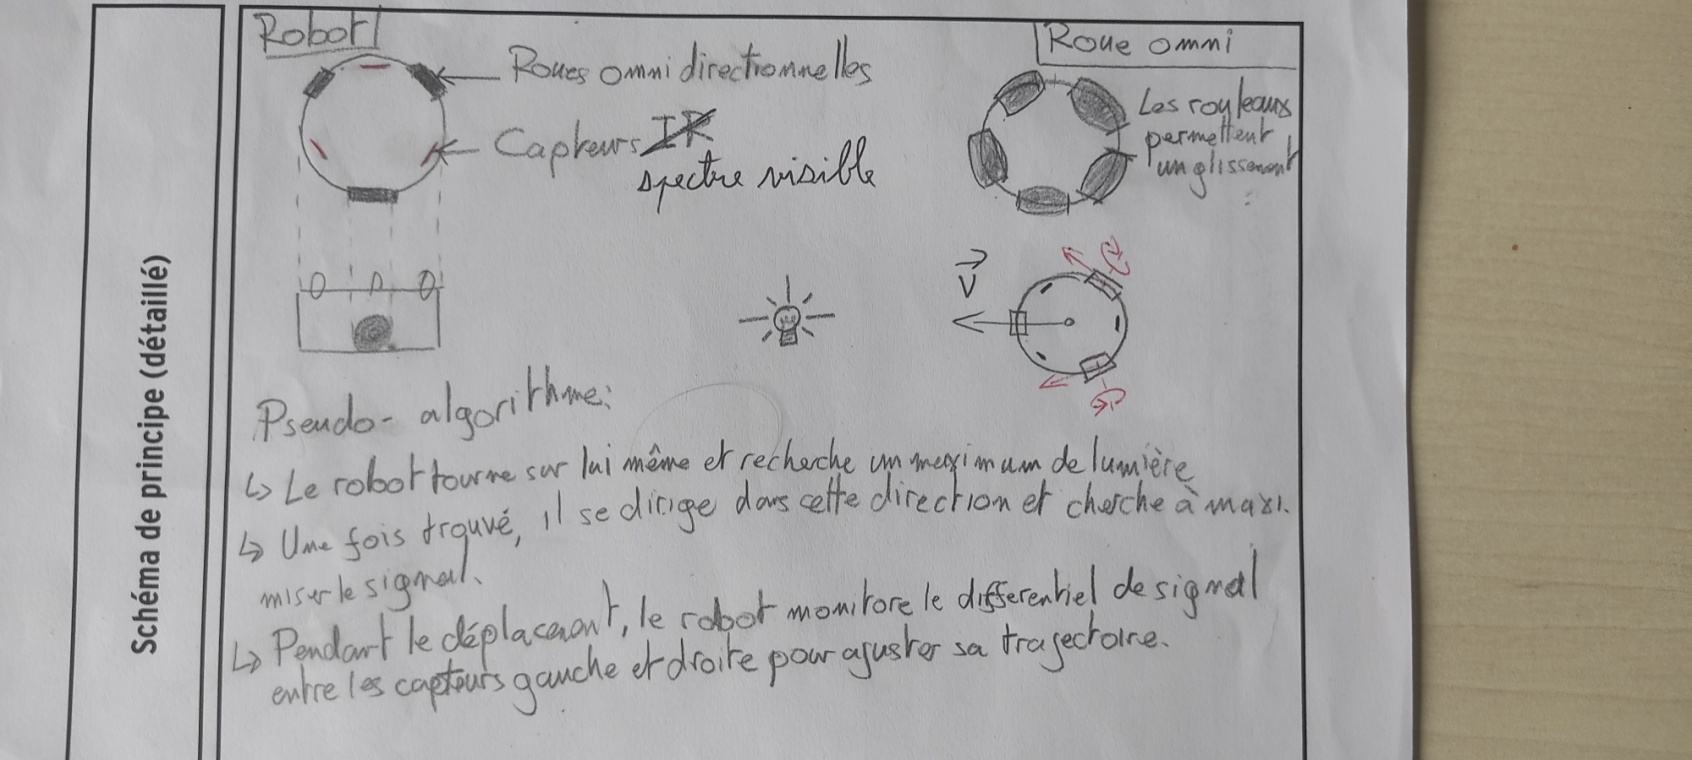 Schéma de principe (détaillé)
Robot
Roues omnidirectionnelles
Capteurs IR
spectre visible
Roue omni
Les rouleaux
permettent
un glissement
V
Pseudo-algorithme:
↳ Le robot tourne sur lui même et recherche un maximum de lumière
↳ Une fois trouvé, il se dirige dans cette direction et cherche à maxi-
miser le signal.
↳ Pendant le déplacement, le robot monitore le differentiel de signal
entre les capteurs gauche et droite pour ajuster sa trajectoire.